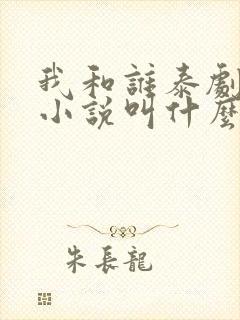 我和誰泰劇
小說叫什麼
朱長龍